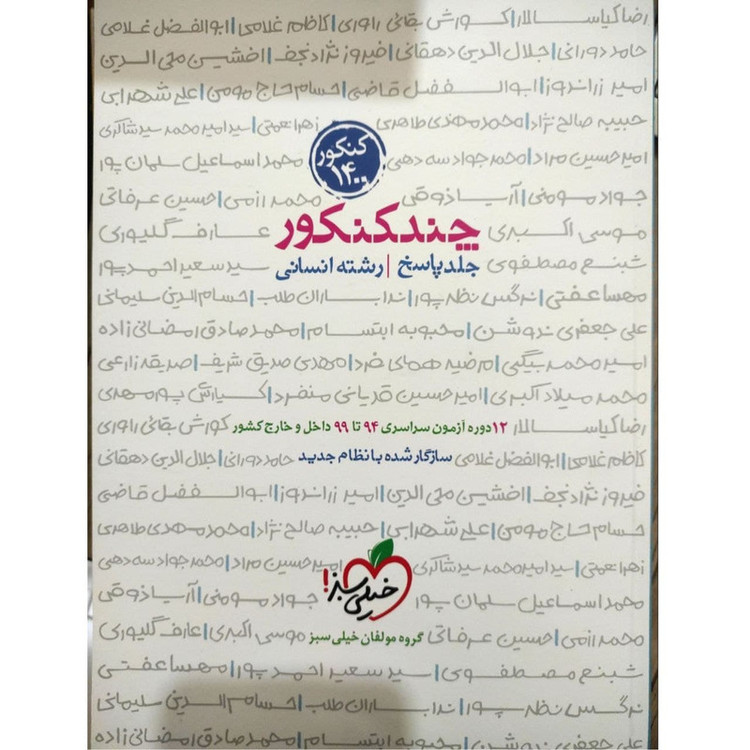 رضا کیاسالار | کورش بقائی راوری | کاظم غلامی | ابوالفضل غلامی
حامد دورانی | جلال الدین دهقانی | فیروز نژادنجف | افشین محی الدین
امیر زراندوز | ابوالفضل قاضی | حسام حاج مومن | علی شهرابی
حبیبه صالح نژاد | محمدمهدی طاهری | زهرا نعمتی | سید امیر محمد سید شاکری
امیرحسین مراد | محمدجواد سه دهی | محمد اسماعیل سلمان پور
کنکور
۱۴۰۰
جواد مومنی | آریا ذوقی | محمد رزمی | حسین عرفاتی
موسی اکبری | عارف گلیوری
چند کنکور
شبنم مصطفوی | سید سعید احمدپور
جلد پاسخ | رشته انسانی
مهسا عفتی | نرگس نظرپور | ندا باران طلب | حسام الدین سلیمانی
علی جعفری ندوشن | محبوبه ابتسام | محمدصادق رمضانی زاده
امیر محمد بیگی | مرضیه همای فرد | مهدی صدیق شریف | صدیقه زارعی
محمد میلاد اکبری | امیرحسین قدیانی منفرد | کیارش پورمهدی
رضا کیاسالار ۱۲ دوره آزمون سراسری ۹۴ تا ۹۹ داخل و خارج کشور کورش بقائی راوری
کاظم غلامی | ابوالفضل غلامی سازگار شده با نظام جدید حامد دورانی | جلال الدین دهقانی
فیروز نژادنجف | افشین محی الدین | امیر زراندوز | ابوالفضل قاضی
حسام حاج مومن | علی شهرابی | حبیبه صالح نژاد | محمدمهدی طاهری
زهرا نعمتی | سید امیر محمد سید شاکری | امیرحسین مراد | محمدجواد سه دهی
خیلی سبز!
محمد اسماعیل سلمان پور | جواد مومنی | آریا ذوقی
محمد رزمی | حسین عرفاتی گروه مولفان خیلی سبز موسی اکبری | عارف گلیوری
شبنم مصطفوی | سید سعید احمدپور | مهسا عفتی
نرگس نظرپور | ندا باران طلب | حسام الدین سلیمانی
علی جعفری ندوشن | محبوبه ابتسام | محمدصادق رمضانی زاده